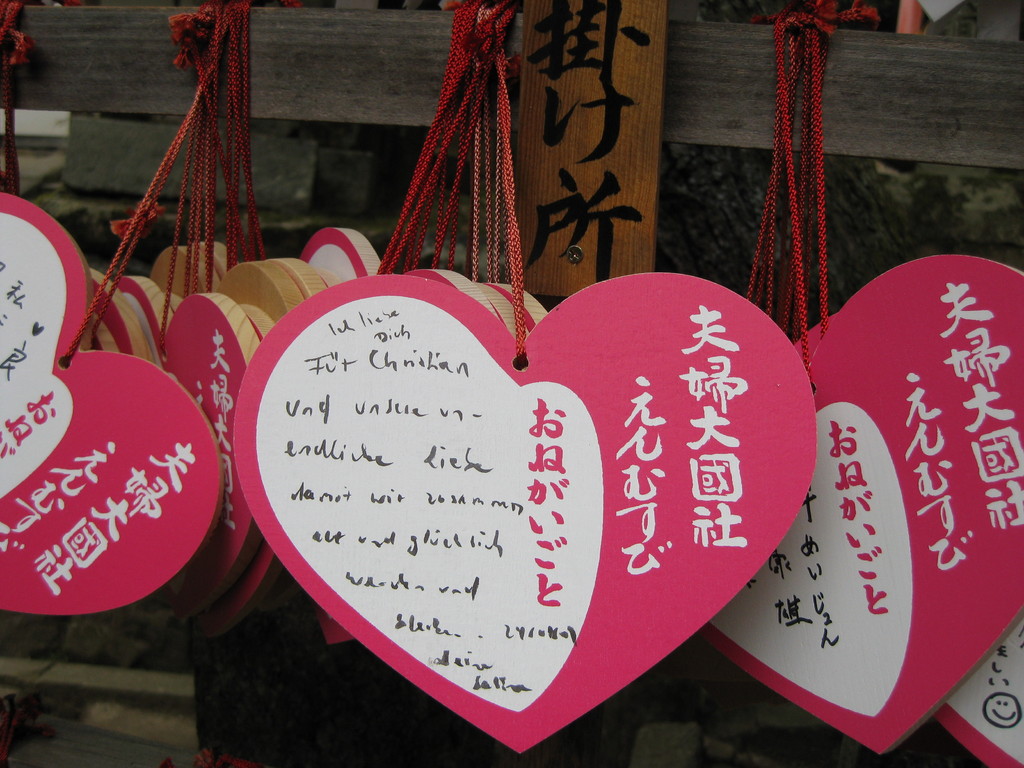 掛け所
Ich liebe
Dich
Für Christian
und unsere un-
endliche liebe
damit wir zusammen
alt und glücklich
werden und
bleiben.
deine
おねがいごと
えんむすび
夫婦大國社
夫婦大國社
えんむすび
おねがいごと
めいじょん
雄
夫婦大國社
えんむすび
おねが
夫婦大國社